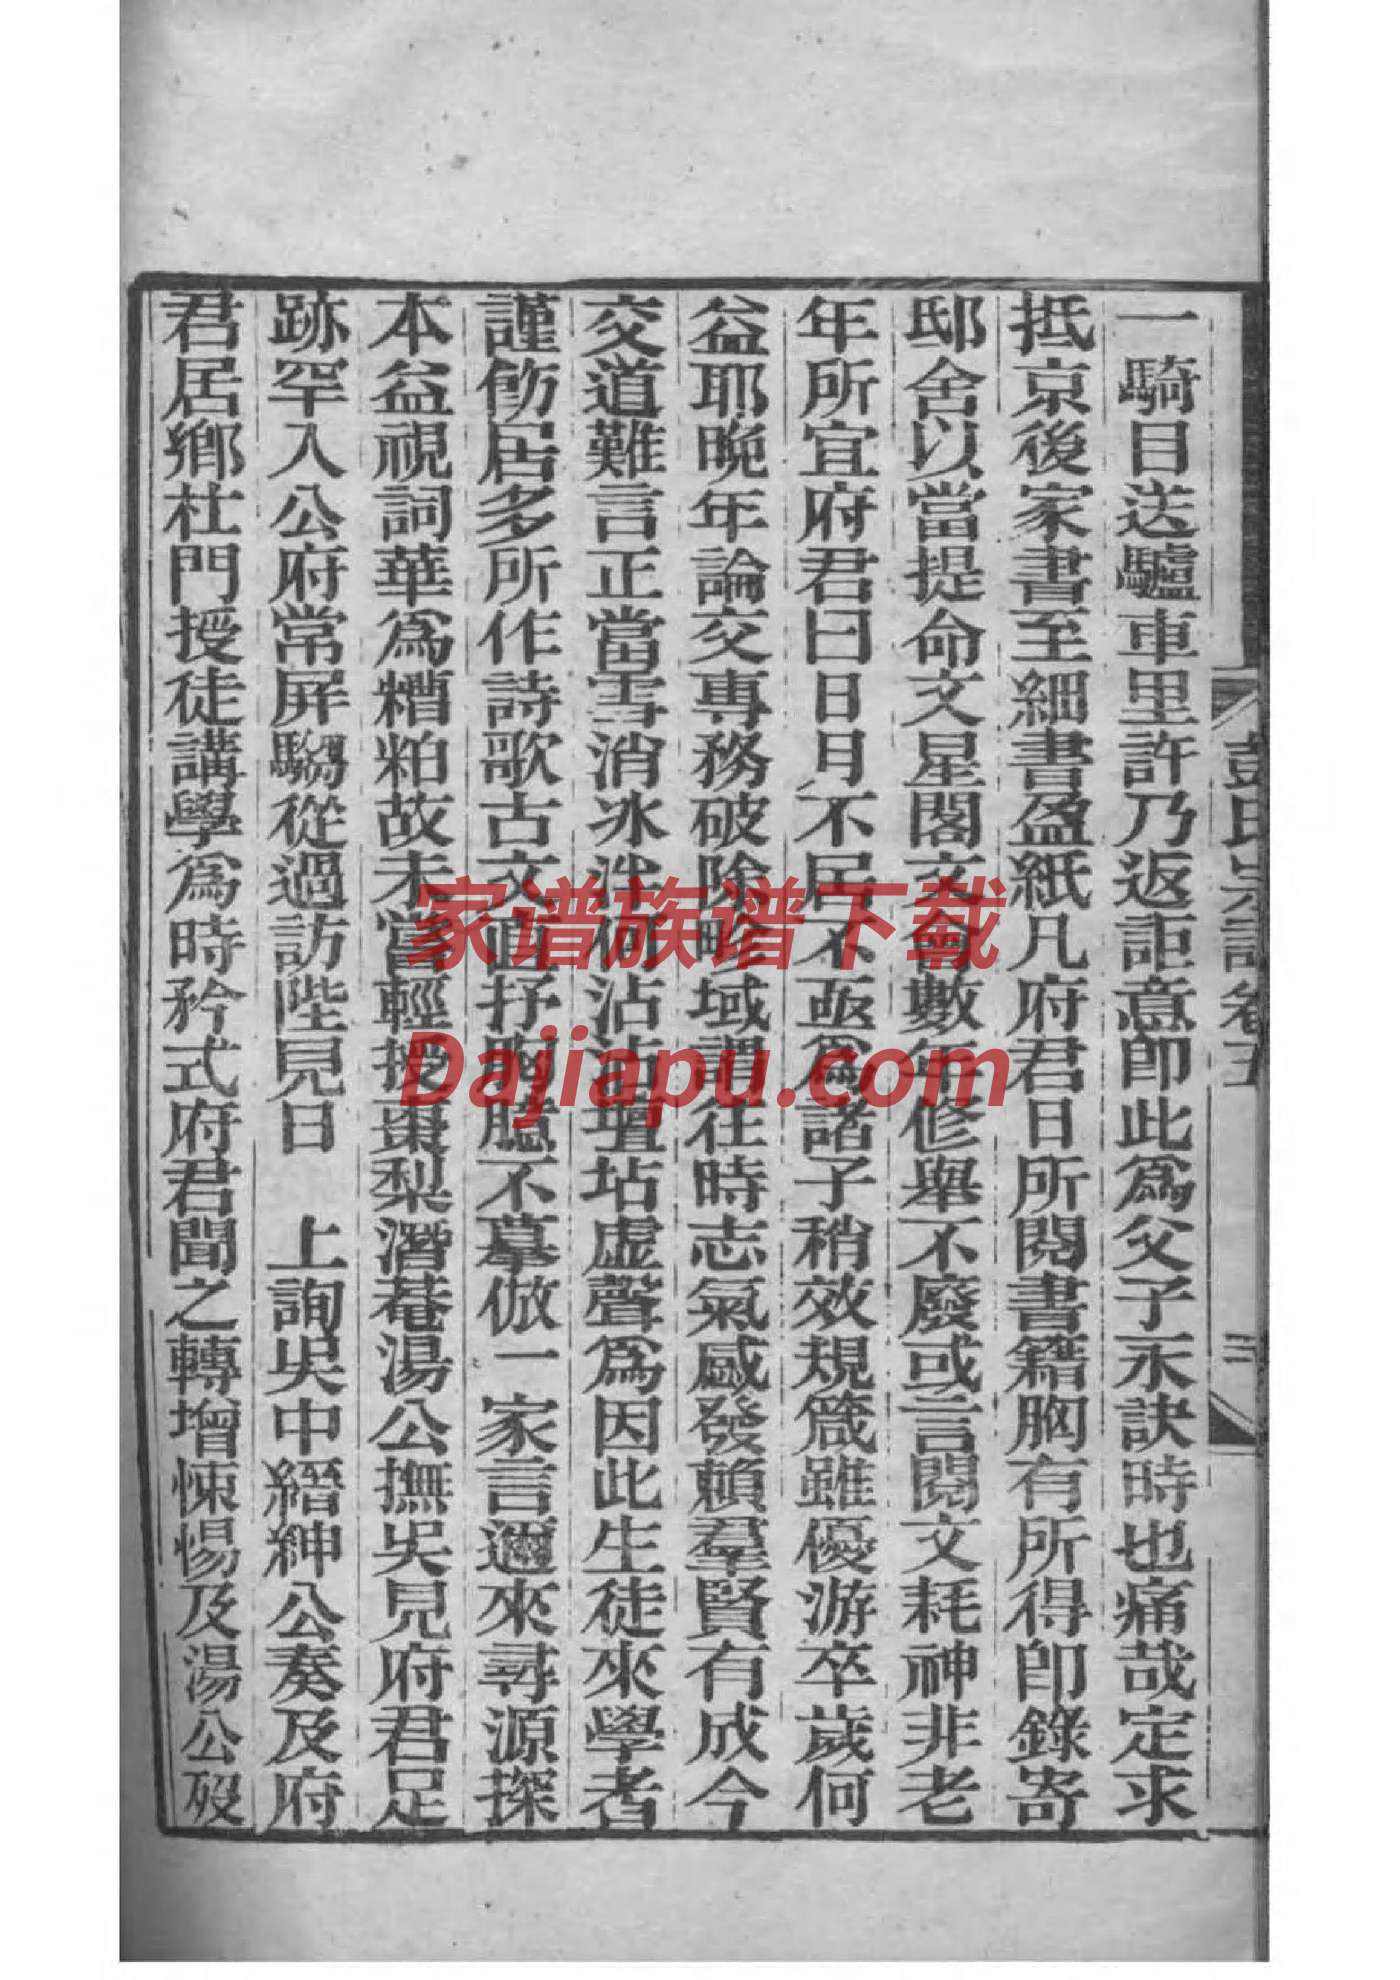 一騎目送驢車里許乃返詎意即此為父子永訣時也痛哉定求
抵京後家書至細書盈紙凡府君日所閱書籍胸有所得即錄寄
邸舍以當提命文星閣文會數年修舉不廢或言閱文耗神非老
年所宜府君曰日月不居不亟為諸子稍效規箴雖優游卒歲何
益耶晚年論交專務破除畛域謂往時志氣感發賴羣賢有成今
交道難言正當雪消冰泮何沾沾壇坫虛聲為因此生徒來學者
謹飭居多所作詩歌古文直抒胸臆不摹倣一家言邇來尋源探
本益視詞華為糟粕故未嘗輕授棗梨潛菴湯公撫吳見府君足
跡罕入公府常屏騶從過訪陛見日　上詢吳中縉紳公奏及府
君居鄉杜門授徒講學為時矜式府君聞之轉增悚惕及湯公歿
彭氏宗譜卷
家谱族谱下载
Dajiapu.com